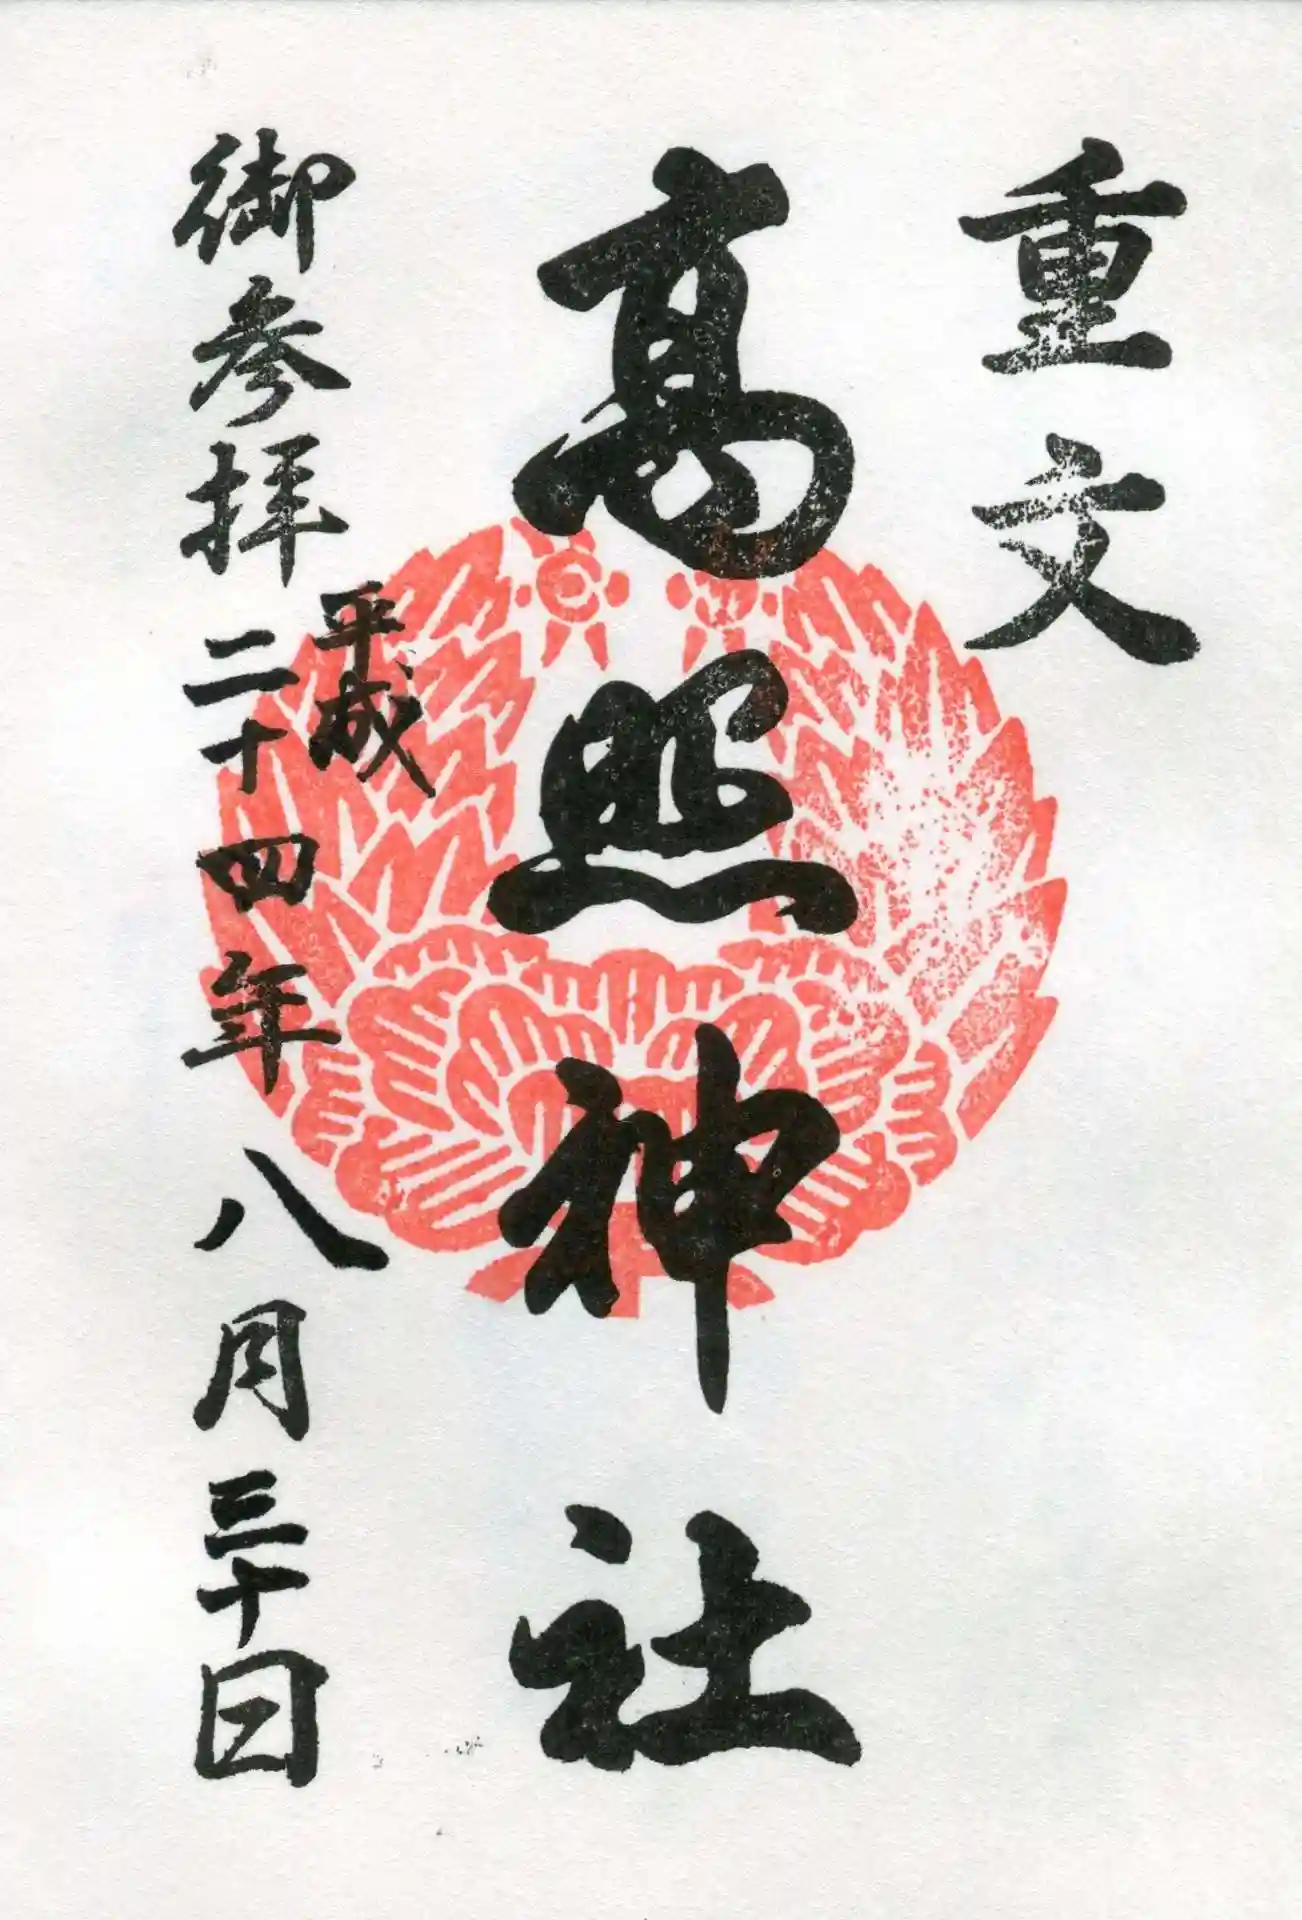 重文
高照神社
平成
御参拝 二十四年 八月三十日